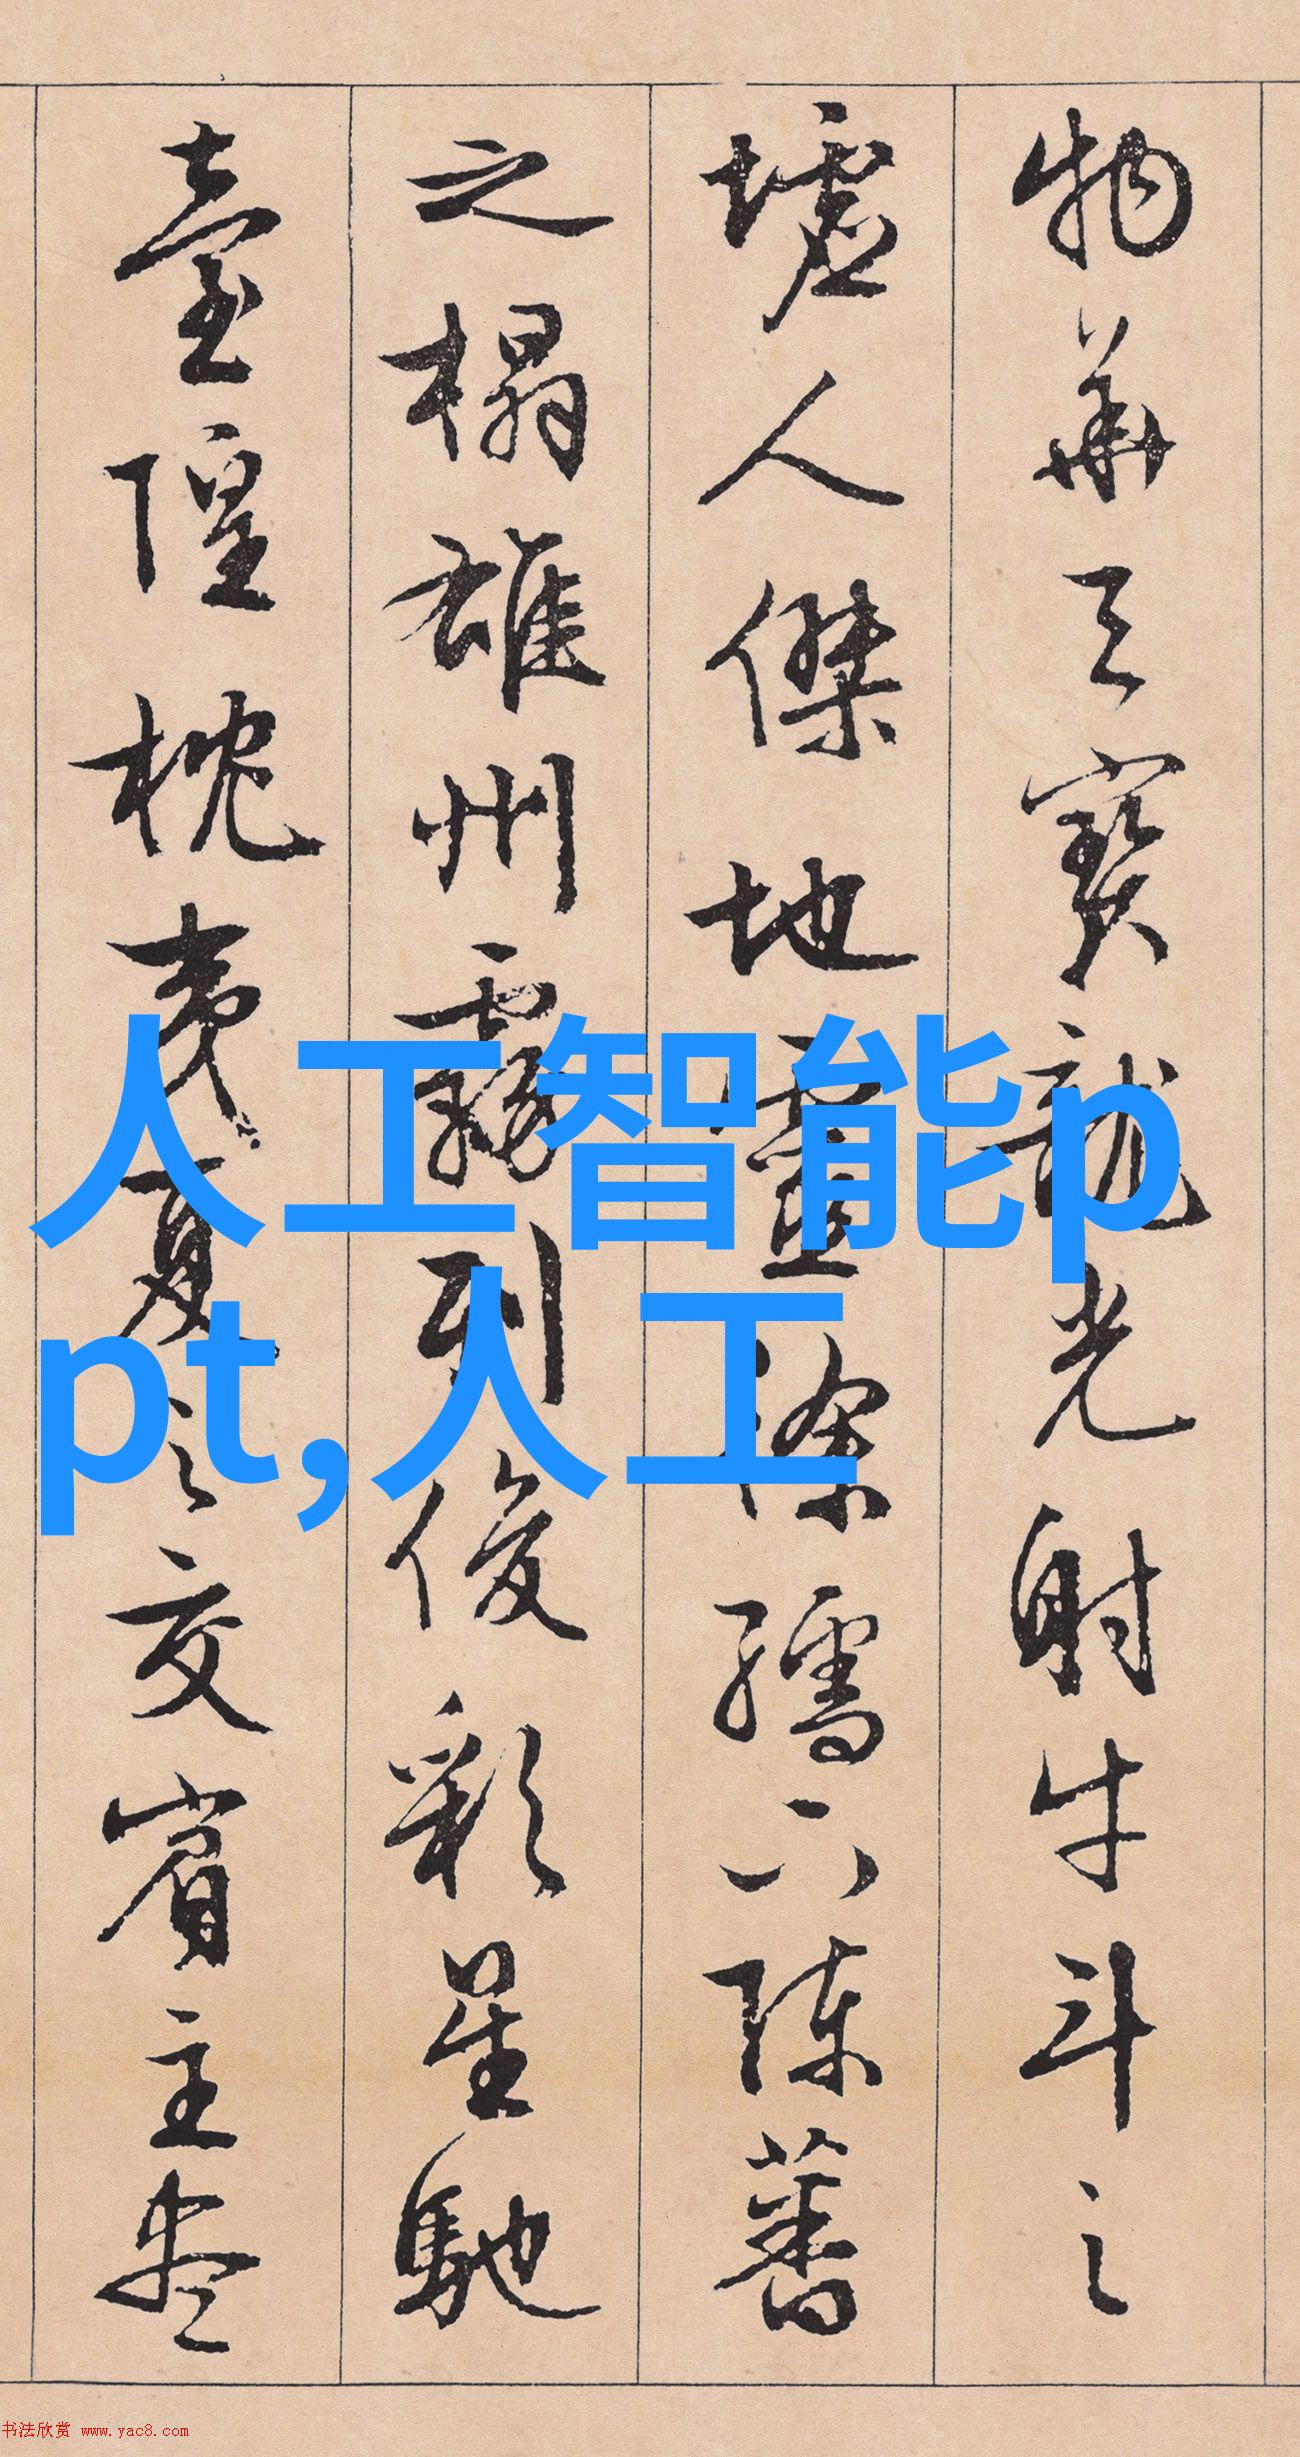 物華天寶龍光射牛斗之
墟人傑地靈徐孺下陳蕃
之榻雄州霧列俊彩星馳
臺隍枕夷夏之交賓主盡
人工智能p
pt,人工
书法欣赏 www.yac8.com